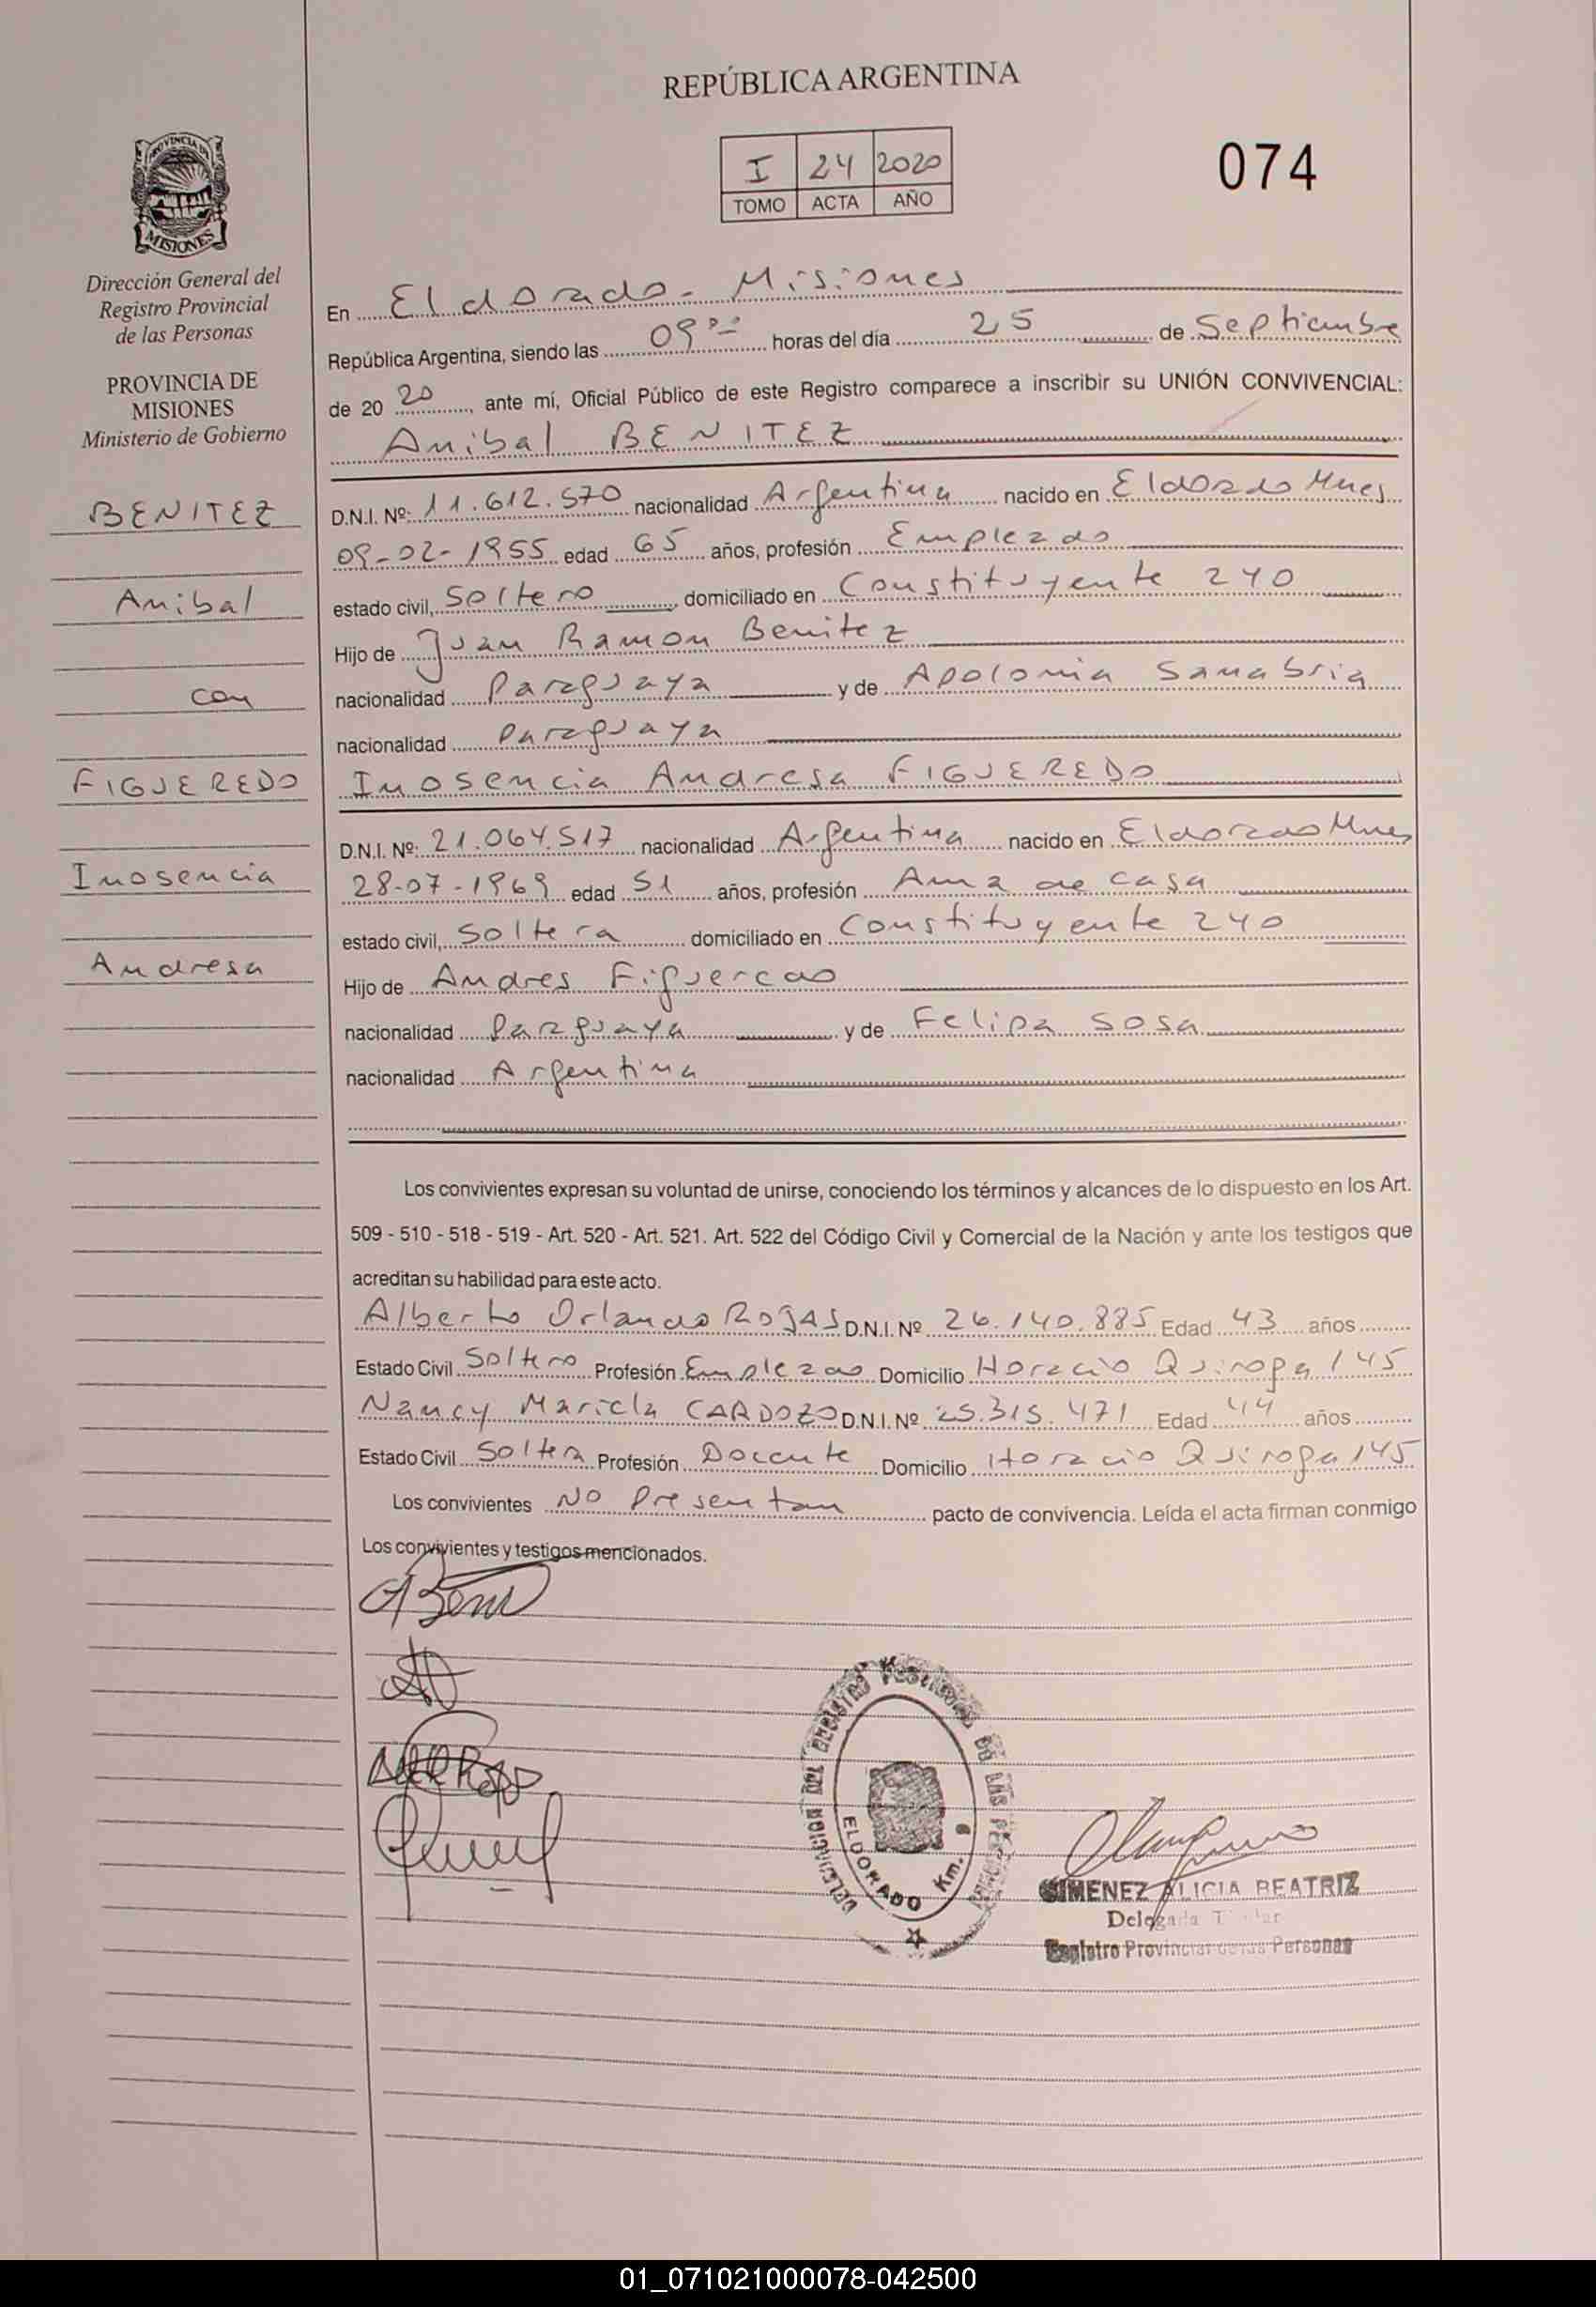 REPÚBLICA ARGENTINA
I 24 2020
TOMO ACTA AÑO
074
PROVINCIA DE
MISIONES
Dirección General del
Registro Provincial
de las Personas
PROVINCIA DE
MISIONES
Ministerio de Gobierno
BENITEZ
Anibal
con
FIGUEREDO
Inosencia
Andresa
En Eldorado - Misiones
República Argentina, siendo las 09 00 horas del día 25 de Septiembre
de 20 20, ante mí, Oficial Público de este Registro comparece a inscribir su UNIÓN CONVIVENCIAL:
Anibal BENITEZ
D.N.I. Nº: 11.612.570 nacionalidad Argentina nacido en Eldorado Mnes
09-02-1955 edad 65 años, profesión Empleado
estado civil, Soltero, domiciliado en Constituyente 240
Hijo de Juan Ramon Benitez
nacionalidad Paraguaya y de Apolonia Sanabria
nacionalidad Paraguaya
Inosencia Andresa FIGUEREDO
D.N.I. Nº: 21.064.517 nacionalidad Argentina nacido en Eldorado Mnes
28-07-1969 edad 51 años, profesión Ama de casa
estado civil, Soltera domiciliado en Constituyente 240
Hijo de Andres Figueredo
nacionalidad Paraguaya y de Felipa Sosa
nacionalidad Argentina
Los convivientes expresan su voluntad de unirse, conociendo los términos y alcances de lo dispuesto en los Art.
509 - 510 - 518 - 519 - Art. 520 - Art. 521. Art. 522 del Código Civil y Comercial de la Nación y ante los testigos que
acreditan su habilidad para este acto.
Alberto Orlando ROJAS D.N.I. Nº 26.140.885 Edad 43 años
Estado Civil Soltero Profesión Empleado Domicilio Horacio Quiroga 145
Nancy Mariela CARDOZO D.N.I. Nº 25.315.471 Edad 44 años
Estado Civil Soltera Profesión Docente Domicilio Horacio Quiroga 145
Los convivientes No Presentan pacto de convivencia. Leída el acta firman conmigo
Los convivientes y testigos mencionados.
DELEGACION DEL REGISTRO PROVINCIAL DE LAS PERSONAS
ELDORADO Km. 6
GIMENEZ ALICIA BEATRIZ
Delegada Titular
Registro Provincial de las Personas
01_071021000078-042500